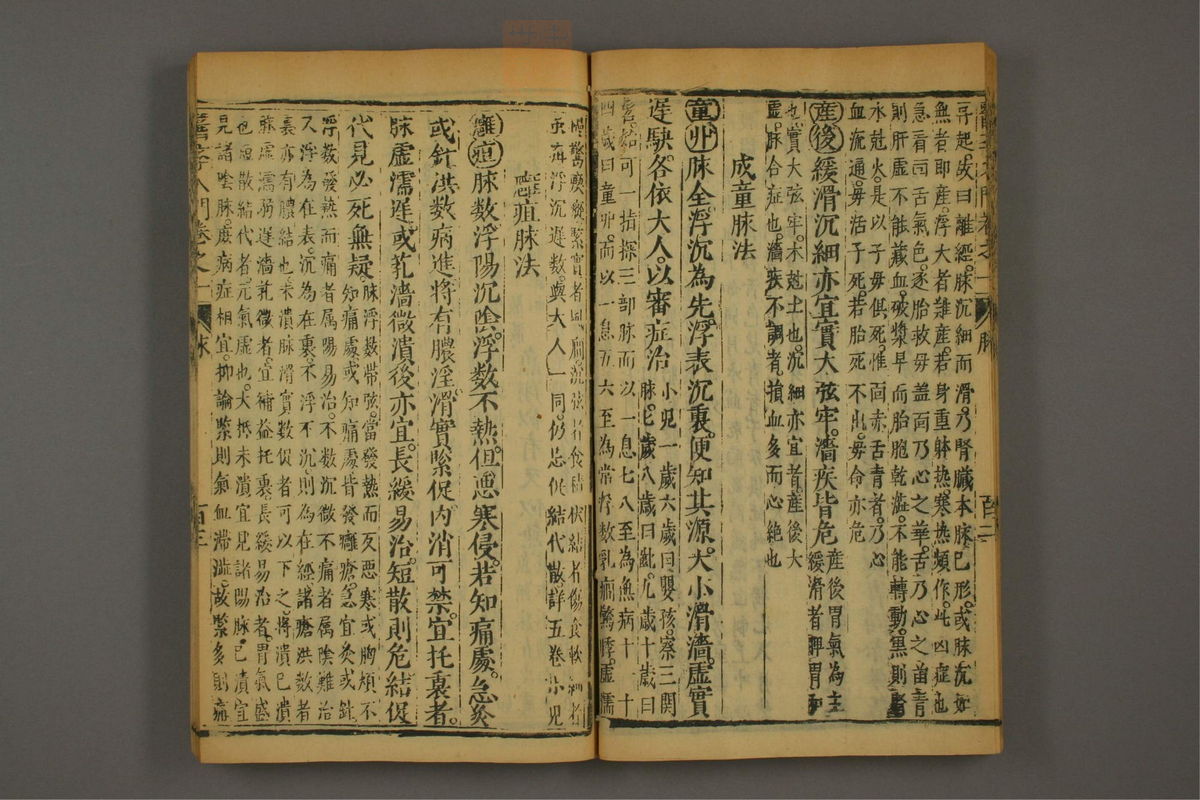 醫學入門卷之一 脉 百二
尋起。故曰離經。脉沉細而滑。乃腎臟本脉已形。或脉沉如
無者即產。浮大者難產。若身重躰熱。寒熱頻作。此凶症也
急看面舌氣色。逐胎救毋。盖面乃心之華。舌乃心之苗。青
則肝虛不能藏血。破漿早而胎胞乾澁。不能轉動。黑則腎
水尅火。是以子毋俱死。惟面赤舌青者。乃心
血流通。毋活子死。若胎死不出。毋命亦危
産後緩滑沉細亦宜實大弦牢。濇疾皆危
産後胃氣為主
緩滑者脾胃和
也實大弦牢。木尅土也。沉細亦宜者。產後大
虛。脉合症也。濇疾不調者。損血多而心絶也
成童脉法
童丱脉全浮沉為先浮表沉裏。便知其源。大小滑濇。虛實
遲駃。各依大人。以審症治
小児一歲六歲曰嬰孩。察三関
脉。七歲八歲曰齓。九歲十歲曰
髫。始可一指探三部脉而以一息七八至為無病十一十
四歲曰童丱。而以一息五六至為常浮數乳癇驚悸。虛濡
慢驚瘈瘲緊實者風癇沉弦者食積伏結者傷食軟細者
虫疳浮沉遲數。與大人一同。仍忌促結代散詳五卷小児
癰疽脉法
癰疽脉數浮陽沉陰。浮數不熱。但慂寒侵。若知痛處。急灸
或針洪数病進將有膿淫滑實緊促。内消可禁。宜托裏者。
脉虛濡遲。或芤濇微潰後亦宜。長緩易治。短散則危結促
代見必死無疑
脉浮数帶弦。當發熱而反悪寒或胸煩不
知痛處。或知痛處皆發癰瘡。急宜灸或針
浮数發熱而痛者属陽易治。不数沉微不痛者属陰難治
又浮為在表。沉為在裏。不浮不沉。則為在經。諸瘡洪数者
裏亦有膿結也未潰脉滑實数促者可以下之。將潰已潰
脉虛濡弱遲濇芤微者。宜補益托裏。長緩易治者。胃氣盛
也短散結代者。元氣虛也。大抵未潰宜見諸陽脉。已潰宜
見諸陰脉。處病症相宜。抑論緊則氣血滞澁。故緊多則痛
醫學入門卷之一 脉 百三